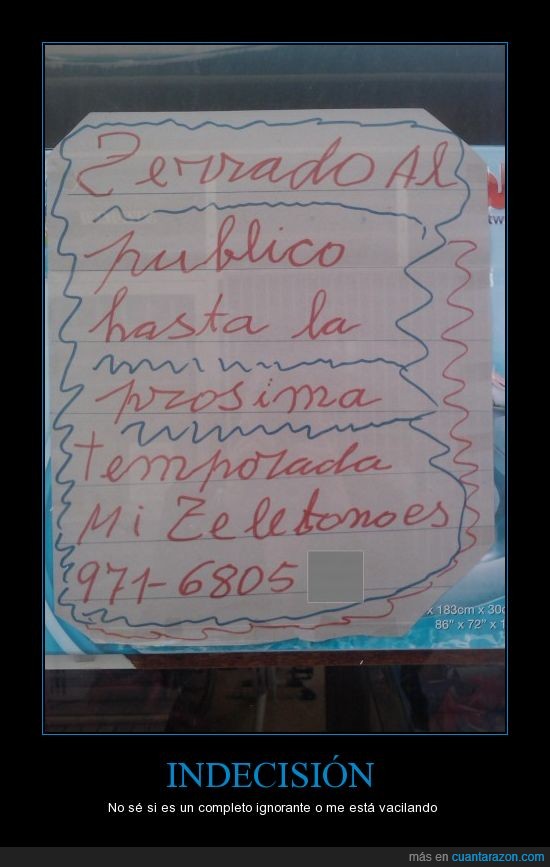 Zerrado Al
publico
hasta la
prosima
temporada
Mi Zeletono es
971-6805
x 183cm x 30c
86" x 72" x 1
INDECISIÓN
No sé si es un completo ignorante o me está vacilando
más en cuantarazon.com